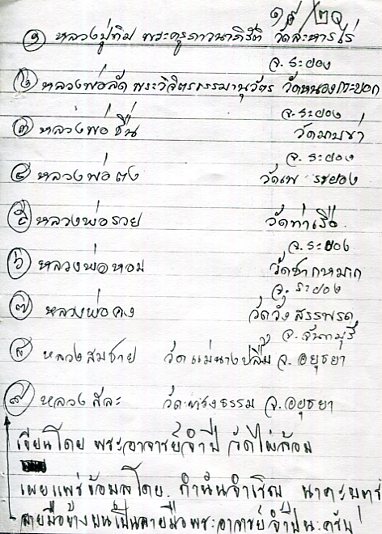 ๑๙/๒๐
๑ หลวงปู่ทิม พระครูภาวนาภิรัติ วัดละหารไร่
จ. ระยอง
๒ หลวงพ่อลัด พระวิจิตรธรรมานุวัตร วัดหนองกระบอก
จ. ระยอง
๓ หลวงพ่อชื่น วัดมาบข่า
จ. ระยอง
๔ หลวงพ่อ วัดเพ ระยอง
๕ หลวงพ่อรวย วัดท่าเรือ
จ. ระยอง
๖ หลวงพ่อหอม วัดซากหมาก
จ. ระยอง
๗ หลวงพ่อคง วัดวังสรรพรด
จ. จันทบุรี
๘ หลวงสมชาย วัดแม่นางปลื้ม จ. อยุธยา
๙ หลวงสีละ จ. อยุธยา
เขียนโดย พระอาจารย์จำปี วัดไผ่ล้อม
เผยแพร่ข้อมูลโดย. กำนันจำเริญ
ลายมือข้างบนเป็นลายมือพระอาจารย์จำปีนะครับ